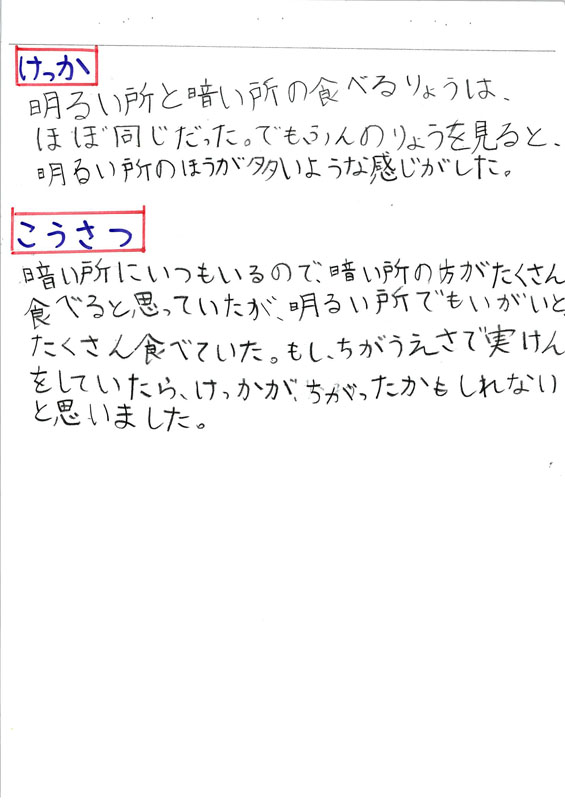 けっか
明るい所と暗い所の食べるりょうは、
ほぼ同じだった。でもふんのりょうを見ると、
明るい所のほうが多いような感じがした。
こうさつ
暗い所にいつもいるので、暗い所の方がたくさん
食べると思っていたが、明るい所でもいがいと
たくさん食べていた。もし、ちがうえさで実けん
をしていたら、けっかが、ちがったかもしれない
と思いました。